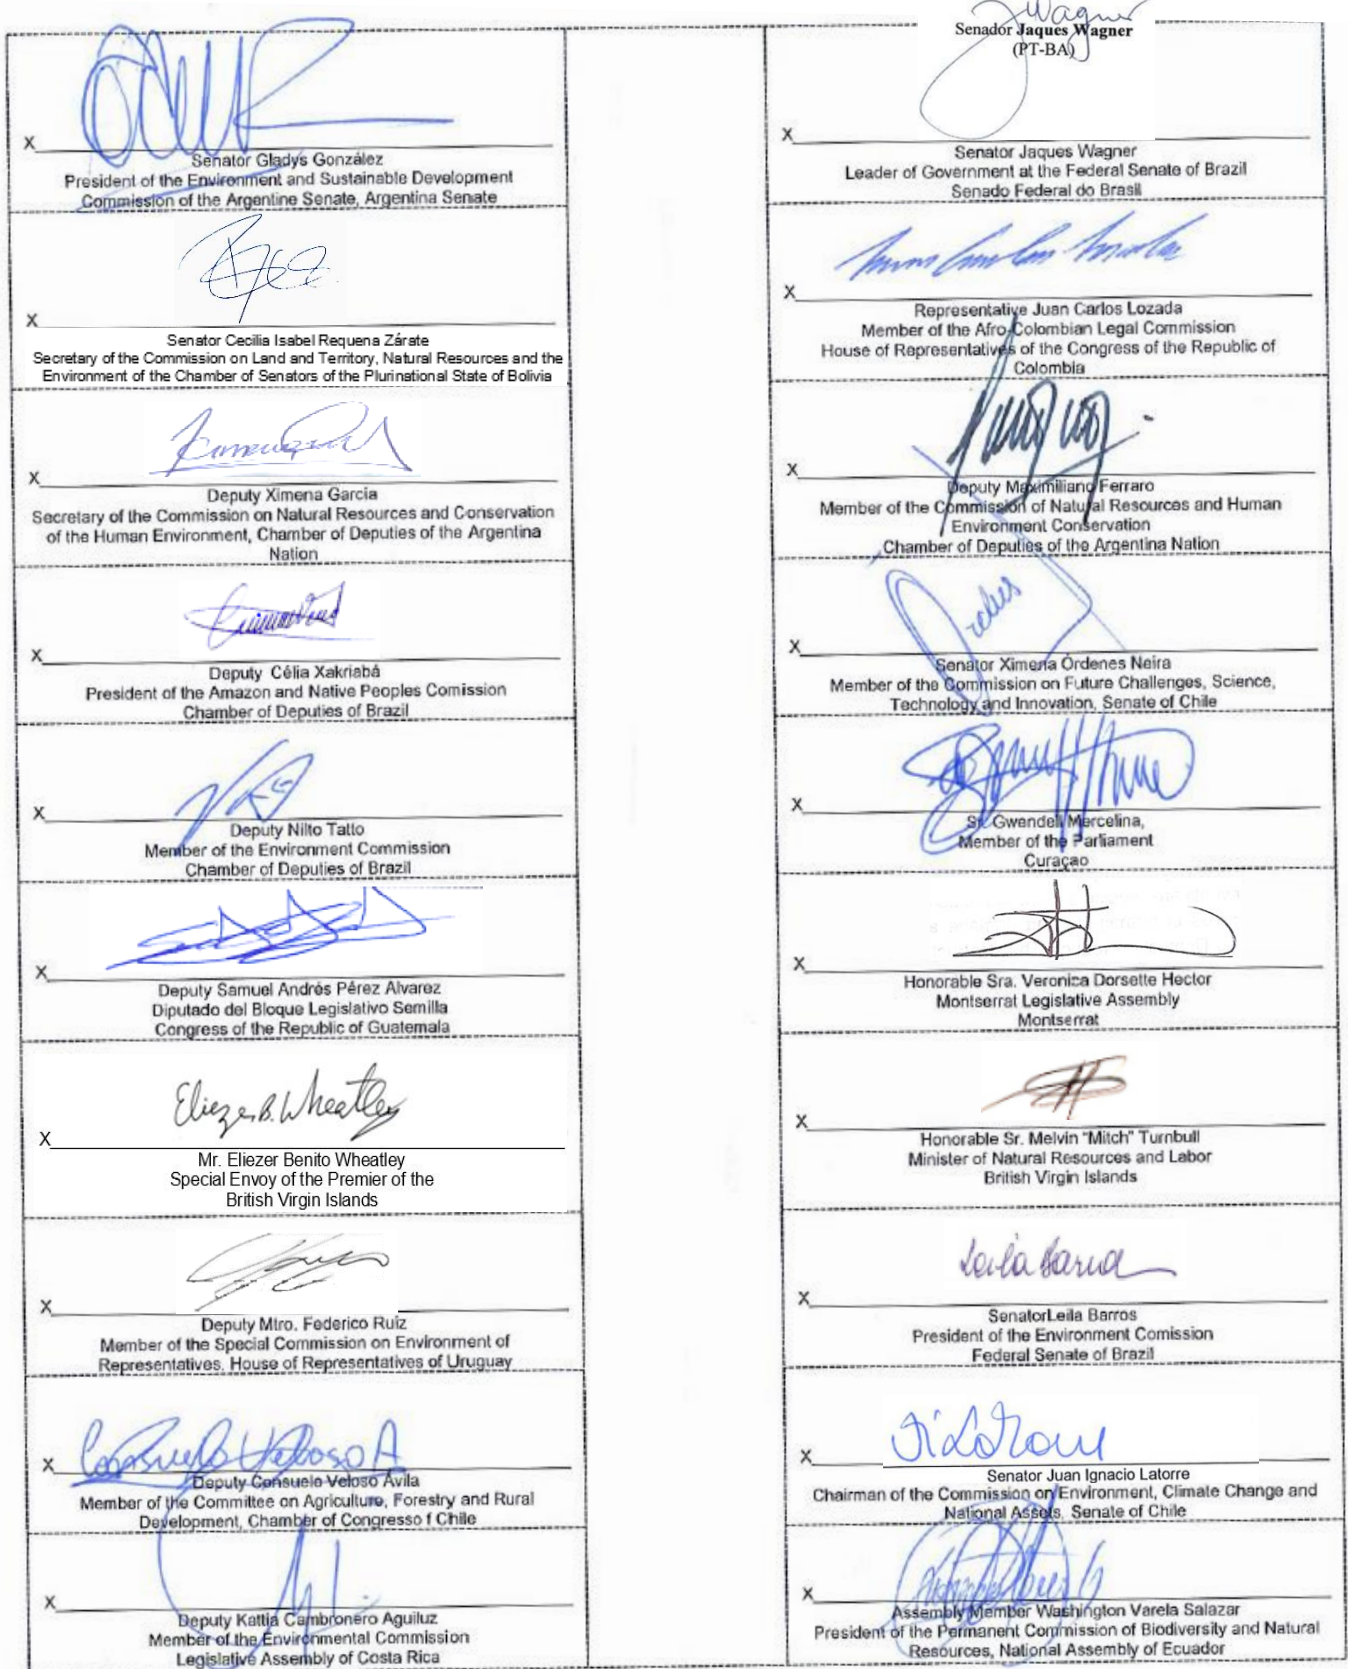 X
Senator Gladys González
President of the Environment and Sustainable Development
Commission of the Argentine Senate, Argentina Senate
X
Senator Cecilia Isabel Requena Zárate
Secretary of the Commission on Land and Territory, Natural Resources and the
Environment of the Chamber of Senators of the Plurinational State of Bolivia
X
Deputy Ximena García
Secretary of the Commission on Natural Resources and Conservation
of the Human Environment, Chamber of Deputies of the Argentina
Nation
X
Deputy Célia Xakriabá
President of the Amazon and Native Peoples Comission
Chamber of Deputies of Brazil
X
Deputy Nilto Tatto
Member of the Environment Commission
Chamber of Deputies of Brazil
X
Deputy Samuel Andrés Pérez Alvarez
Diputado del Bloque Legislativo Semilla
Congress of the Republic of Guatemala
Eliezer B. Wheatley
X
Mr. Eliezer Benito Wheatley
Special Envoy of the Premier of the
British Virgin Islands
X
Deputy Mtro. Federico Ruiz
Member of the Special Commission on Environment of
Representatives. House of Representatives of Uruguay
Consuelo Veloso A
X
Deputy Consuelo Veloso Avila
Member of the Committee on Agriculture, Forestry and Rural
Development, Chamber of Congresso f Chile
X
Deputy Kattia Cambronero Aguiluz
Member of the Environmental Commission
Legislative Assembly of Costa Rica
JWagner
Senador Jaques Wagner
(PT-BA)
X
Senator Jaques Wagner
Leader of Government at the Federal Senate of Brazil
Senado Federal do Brasil
X
Representative Juan Carlos Lozada
Member of the Afro-Colombian Legal Commission
House of Representatives of the Congress of the Republic of
Colombia
X
Deputy Maximiliano Ferraro
Member of the Commission of Natural Resources and Human
Environment Conservation
Chamber of Deputies of the Argentina Nation
X
Senator Ximena Órdenes Neira
Member of the Commission on Future Challenges, Science,
Technology and Innovation, Senate of Chile
X
Sr. Gwendell Mercelina,
Member of the Parliament
Curaçao
X
Honorable Sra. Veronica Dorsette Hector
Montserrat Legislative Assembly
Montserrat
X
Honorable Sr. Melvin “Mitch” Turnbull
Minister of Natural Resources and Labor
British Virgin Islands
Leila Barros
X
SenatorLeila Barros
President of the Environment Comission
Federal Senate of Brazil
X
Senator Juan Ignacio Latorre
Chairman of the Commission on Environment, Climate Change and
National Assets, Senate of Chile
X
Assembly Member Washington Varela Salazar
President of the Permanent Commission of Biodiversity and Natural
Resources, National Assembly of Ecuador